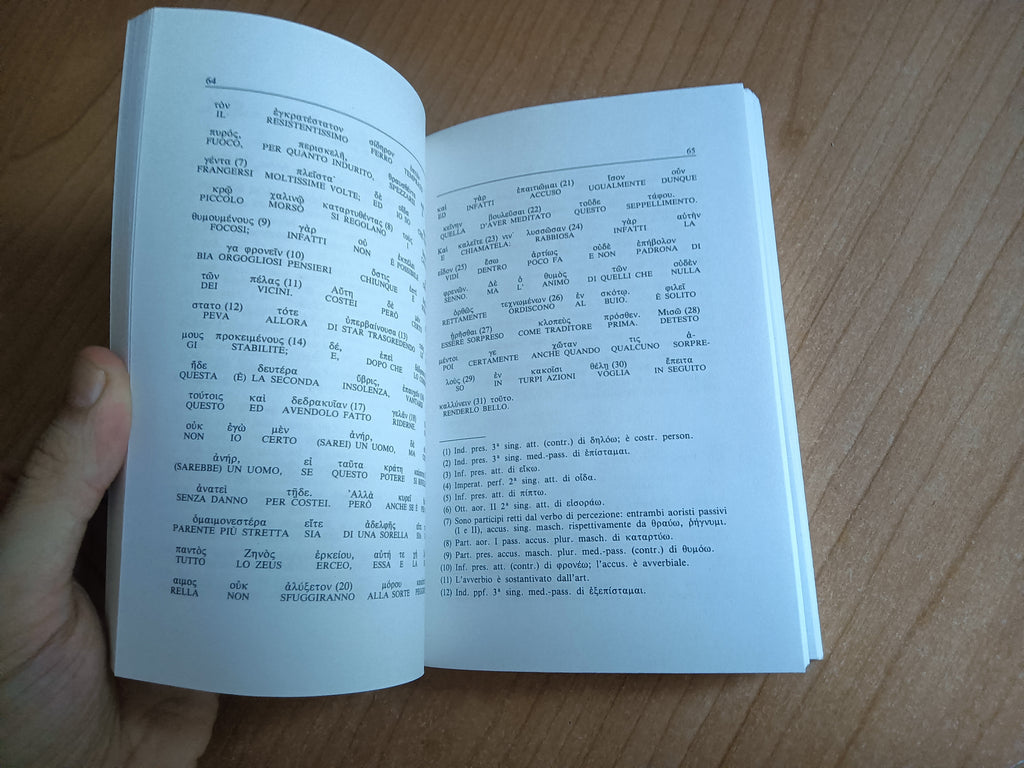 64
τὸν ἐγκρατέστατον σίδηρον
IL RESISTENTISSIMO FERRO
πυρός, περισκελῆ,
FUOCO, PER QUANTO INDURITO, SPEZZARSI
γέντα (7) πλεῖστα· δὲ
FRANGERSI MOLTISSIME VOLTE; ED IO SO
χρῷ χαλινῷ καταρτυθέντας (8)
PICCOLO MORSO SI REGOLANO
θυμουμένους (9) γὰρ οὐ
FOCOSI; INFATTI NON È POSSIBILE
γα φρονεῖν (10) ὅστις
BIA ORGOGLIOSI PENSIERI CHIUNQUE
τῶν πέλας (11) Αὕτη δὲ
DEI VICINI. COSTEI PERÒ
στατο (12) τότε ὑπερβαίνουσα (13)
PEVA ALLORA DI STAR TRASGREDENDO
μους προκειμένους (14) δέ, ἐπεὶ
GI STABILITE; E, DOPO CHE
ἥδε δευτέρα ὕβρις,
QUESTA (È) LA SECONDA INSOLENZA,
τούτοις καὶ δεδρακυῖαν (17) γελᾶν (18)
QUESTO ED AVENDOLO FATTO RIDERNE.
οὐκ ἐγὼ μὲν ἀνήρ, δὲ
NON IO CERTO (SAREI) UN UOMO, MA
ἀνήρ, εἰ ταῦτα κράτη
(SAREBBE) UN UOMO, SE QUESTO POTERE
ἀνατεὶ τῇδε. Ἀλλὰ κυρεῖ
SENZA DANNO PER COSTEI. PERÒ ANCHE SE È
ὁμαιμονεστέρα εἴτε ἀδελφῆς
PARENTE PIÙ STRETTA SIA DI UNA SORELLA
παντὸς Ζηνὸς ἑρκείου, αὐτή τε
TUTTO LO ZEUS ERCEO, ESSA E LA
αιμος οὐκ ἀλύξετον (20) μόρου
RELLA NON SFUGGIRANNO ALLA SORTE
65
καὶ γὰρ ἐπαιτιῶμαι (21) ἴσον οὖν
ED INFATTI ACCUSO UGUALMENTE DUNQUE
κείνην βουλεῦσαι (22) τοῦδε τάφου.
QUELLA D'AVER MEDITATO QUESTO SEPPELLIMENTO.
Καὶ καλεῖτε (23) νιν· λυσσῶσαν (24) γὰρ αὐτὴν
E CHIAMATELA: RABBIOSA INFATTI LA
εἶδον (25) ἔσω ἀρτίως οὐδὲ ἐπήβολον
VIDI DENTRO POCO FA E NON PADRONA DI
φρενῶν. Δὲ ὁ θυμὸς τῶν οὐδὲν
SENNO. MA L' ANIMO DI QUELLI CHE NULLA
ὀρθῶς τεχνωμένων (26) ἐν σκότῳ. φιλεῖ
RETTAMENTE ORDISCONO AL BUIO. È SOLITO
ᾑρῆσθαι (27) κλοπεὺς πρόσθεν. Μισῶ (28)
ESSERE SORPRESO COME TRADITORE PRIMA. DETESTO
μέντοι γε χὥταν τις ἁ-
POI CERTAMENTE ANCHE QUANDO QUALCUNO SORPRE-
λοὺς (29) ἐν κακοῖσι θέλῃ (30) ἔπειτα
SO IN TURPI AZIONI VOGLIA IN SEGUITO
καλλύνειν (31) τοῦτο.
RENDERLO BELLO.
(1) Ind. pres. 3ª sing. att. (contr.) di δηλόω; è costr. person.
(2) Ind. pres. 3ª sing. med.-pass. di ἐπίσταμαι.
(3) Inf. pres. att. di εἴκω.
(4) Imperat. perf. 2ª sing. att. di οἶδα.
(5) Inf. pres. att. di πίπτω.
(6) Ott. aor. II 2ª sing. att. di εἰσοράω.
(7) Sono participi retti dal verbo di percezione: entrambi aoristi passivi
(I e II), accus. sing. masch. rispettivamente da θραύω, ῥήγνυμι.
(8) Part. aor. I pass. accus. plur. masch. di καταρτύω.
(9) Part. pres. accus. masch. plur. med.-pass. (contr.) di θυμόω.
(10) Inf. pres. att. (contr.) di φρονέω; l'accus. è avverbiale.
(11) L'avverbio è sostantivato dall'art.
(12) Ind. ppf. 3ª sing. med.-pass. di ἐξεπίσταμαι.